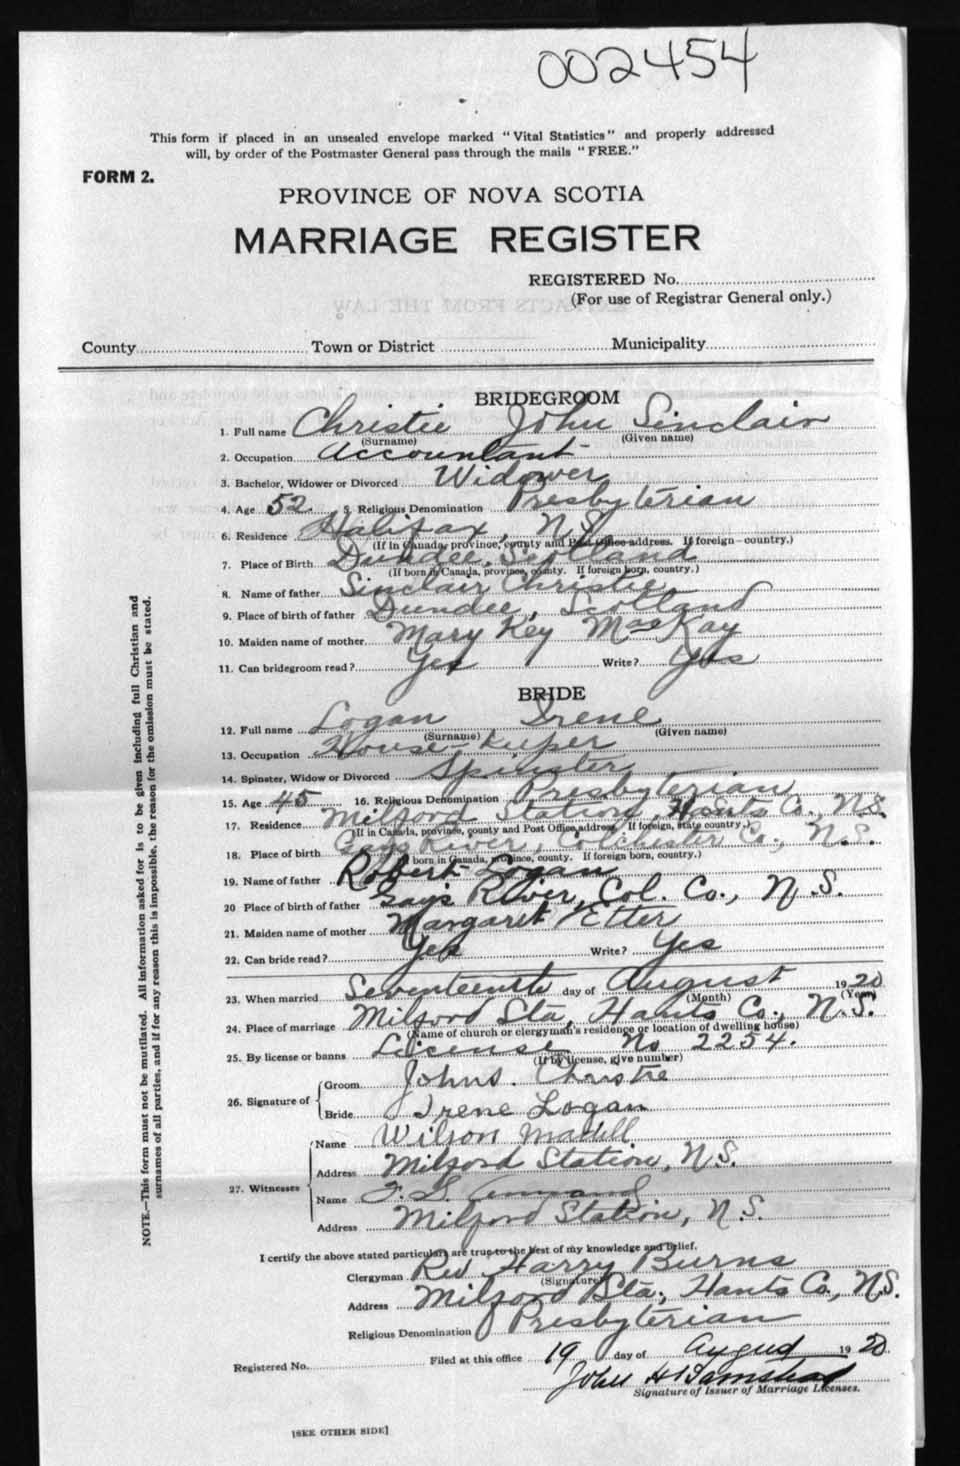 002454
This form if placed in an unsealed envelope marked "Vital Statistics" and properly addressed
will, by order of the Postmaster General pass through the mails "FREE."
FORM 2.
PROVINCE OF NOVA SCOTIA
MARRIAGE REGISTER
REGISTERED No.
(For use of Registrar General only.)
County Town or District Municipality
BRIDEGROOM
1. Full name Christie John Sinclair
(Surname) (Given name)
2. Occupation Accountant
3. Bachelor, Widower or Divorced Widower
4. Age 52 5. Religious Denomination Presbyterian
6. Residence Halifax, N.S.
(If in Canada, province, county and Post Office address. If foreign—country.)
7. Place of Birth Dundee, Scotland
(If born in Canada, province, county. If foreign born, country.)
8. Name of father Sinclair Christie
9. Place of birth of father Dundee, Scotland
10. Maiden name of mother Mary Key MacKay
11. Can bridegroom read? Yes Write? Yes
BRIDE
12. Full name Logan Irene
(Surname) (Given name)
13. Occupation House-Keeper
14. Spinster, Widow or Divorced Spinster
15. Age 45 16. Religious Denomination Presbyterian
17. Residence Milford Station, Hants Co., N.S.
(If in Canada, province, county and Post Office address. If foreign, state country.)
18. Place of birth Gays River, Colchester Co., N.S.
born in Canada, province, county. If foreign born, country.)
19. Name of father Robert Logan
20 Place of birth of father Gays River, Col. Co., N.S.
21. Maiden name of mother Margaret Etter
22. Can bride read? Yes Write? Yes
23. When married Seventeenth day of August 1920
(Month) (Year)
24. Place of marriage Milford Sta, Hants Co., N.S.
(Name of church or clergyman's residence or location of dwelling house)
25. By license or banns License No 2254.
(If by license, give number)
26. Signature of Groom John S. Christie
Bride Irene Logan
27. Witnesses Name Wilson
Address Milford Station, N.S.
Name
Address Milford Station, N.S.
I certify the above stated particulars are true to the best of my knowledge and belief.
Clergyman Rev Harry Burns
(Signature)
Address Milford Sta., Hants Co., N.S.
Religious Denomination Presbyterian
Registered No. Filed at this office 19 day of August 1920.
John H
Signature of Issuer of Marriage Licenses.
[SEE OTHER SIDE]
NOTE.—This form must not be mutilated. All information asked for is to be given including full Christian and
surnames of all parties, and if for any reason this is impossible, the reason for the omission must be stated.